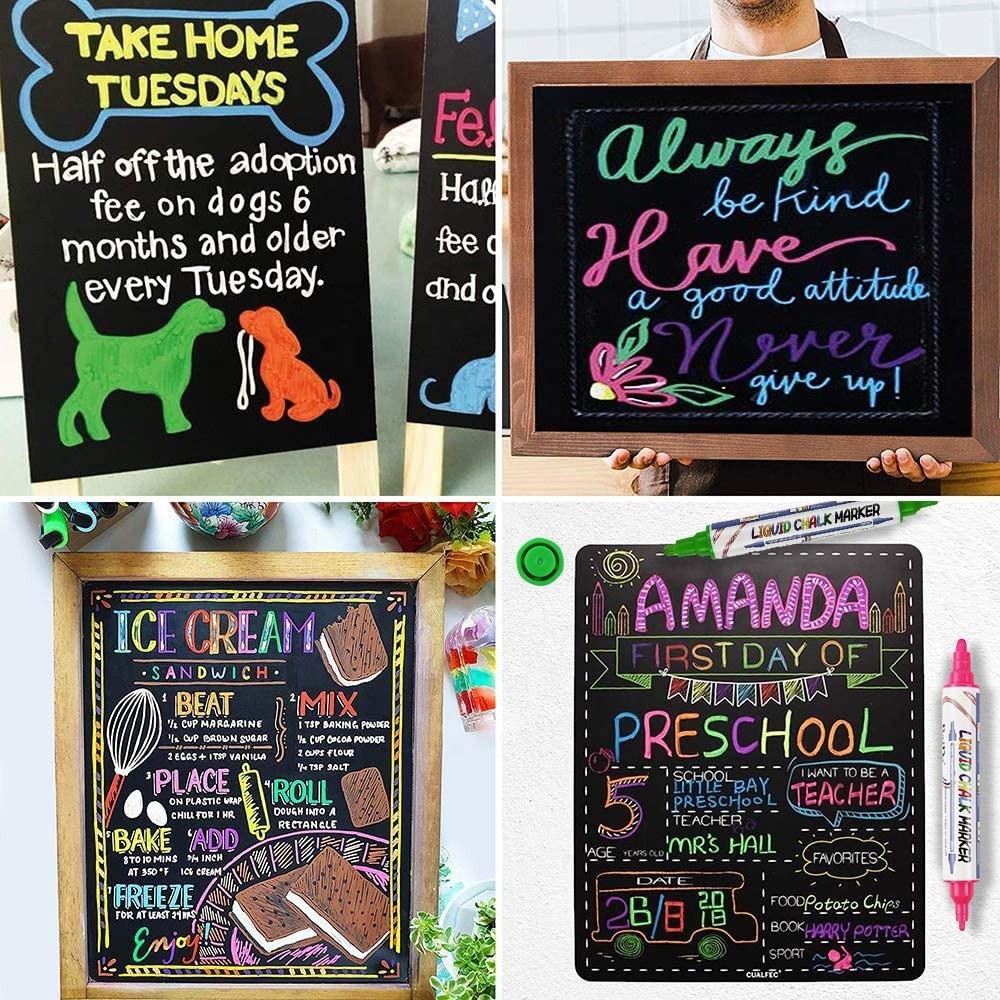 TAKE HOME
TUESDAYS
Half off the adoption
fee on dogs 6
months and older
every Tuesday.
Hal
fee
and o
Always
be kind
Have
a good attitude
Never
give up!
ICE CREAM
·SANDWICH·
1 BEAT
1/2 CUP MARGARINE
1/2 CUP BROWN SUGAR
2 EGGS + 1 TSP VANILLA
2 MIX
1 TSP BAKING POWDER
1/2 CUP COCOA POWDER
2 CUPS FLOUR
1/4 TSP SALT
3 PLACE
ON PLASTIC WRAP
CHILL FOR 1 HR
4 ROLL
DOUGH INTO A
RECTANGLE
5 BAKE
8 TO 10 MINS
AT 350°F
6 ADD
3/4 INCH
ICE CREAM
7 FREEZE
FOR AT LEAST 24 HRS
Enjoy!!
LIQUID CHALK MARKER
AMANDA
FIRST DAY OF
PRESCHOOL
5
AGE YEARS OLD
SCHOOL
LITTLE BAY
PRESCHOOL
TEACHER
MR'S HALL
I WANT TO BE A
TEACHER
FAVORITES
DATE
26/8 2018
FOOD Potato Chips
BOOK HARRY POTTER
SPORT
CUALFEC
LIQUID CHALK MARKER